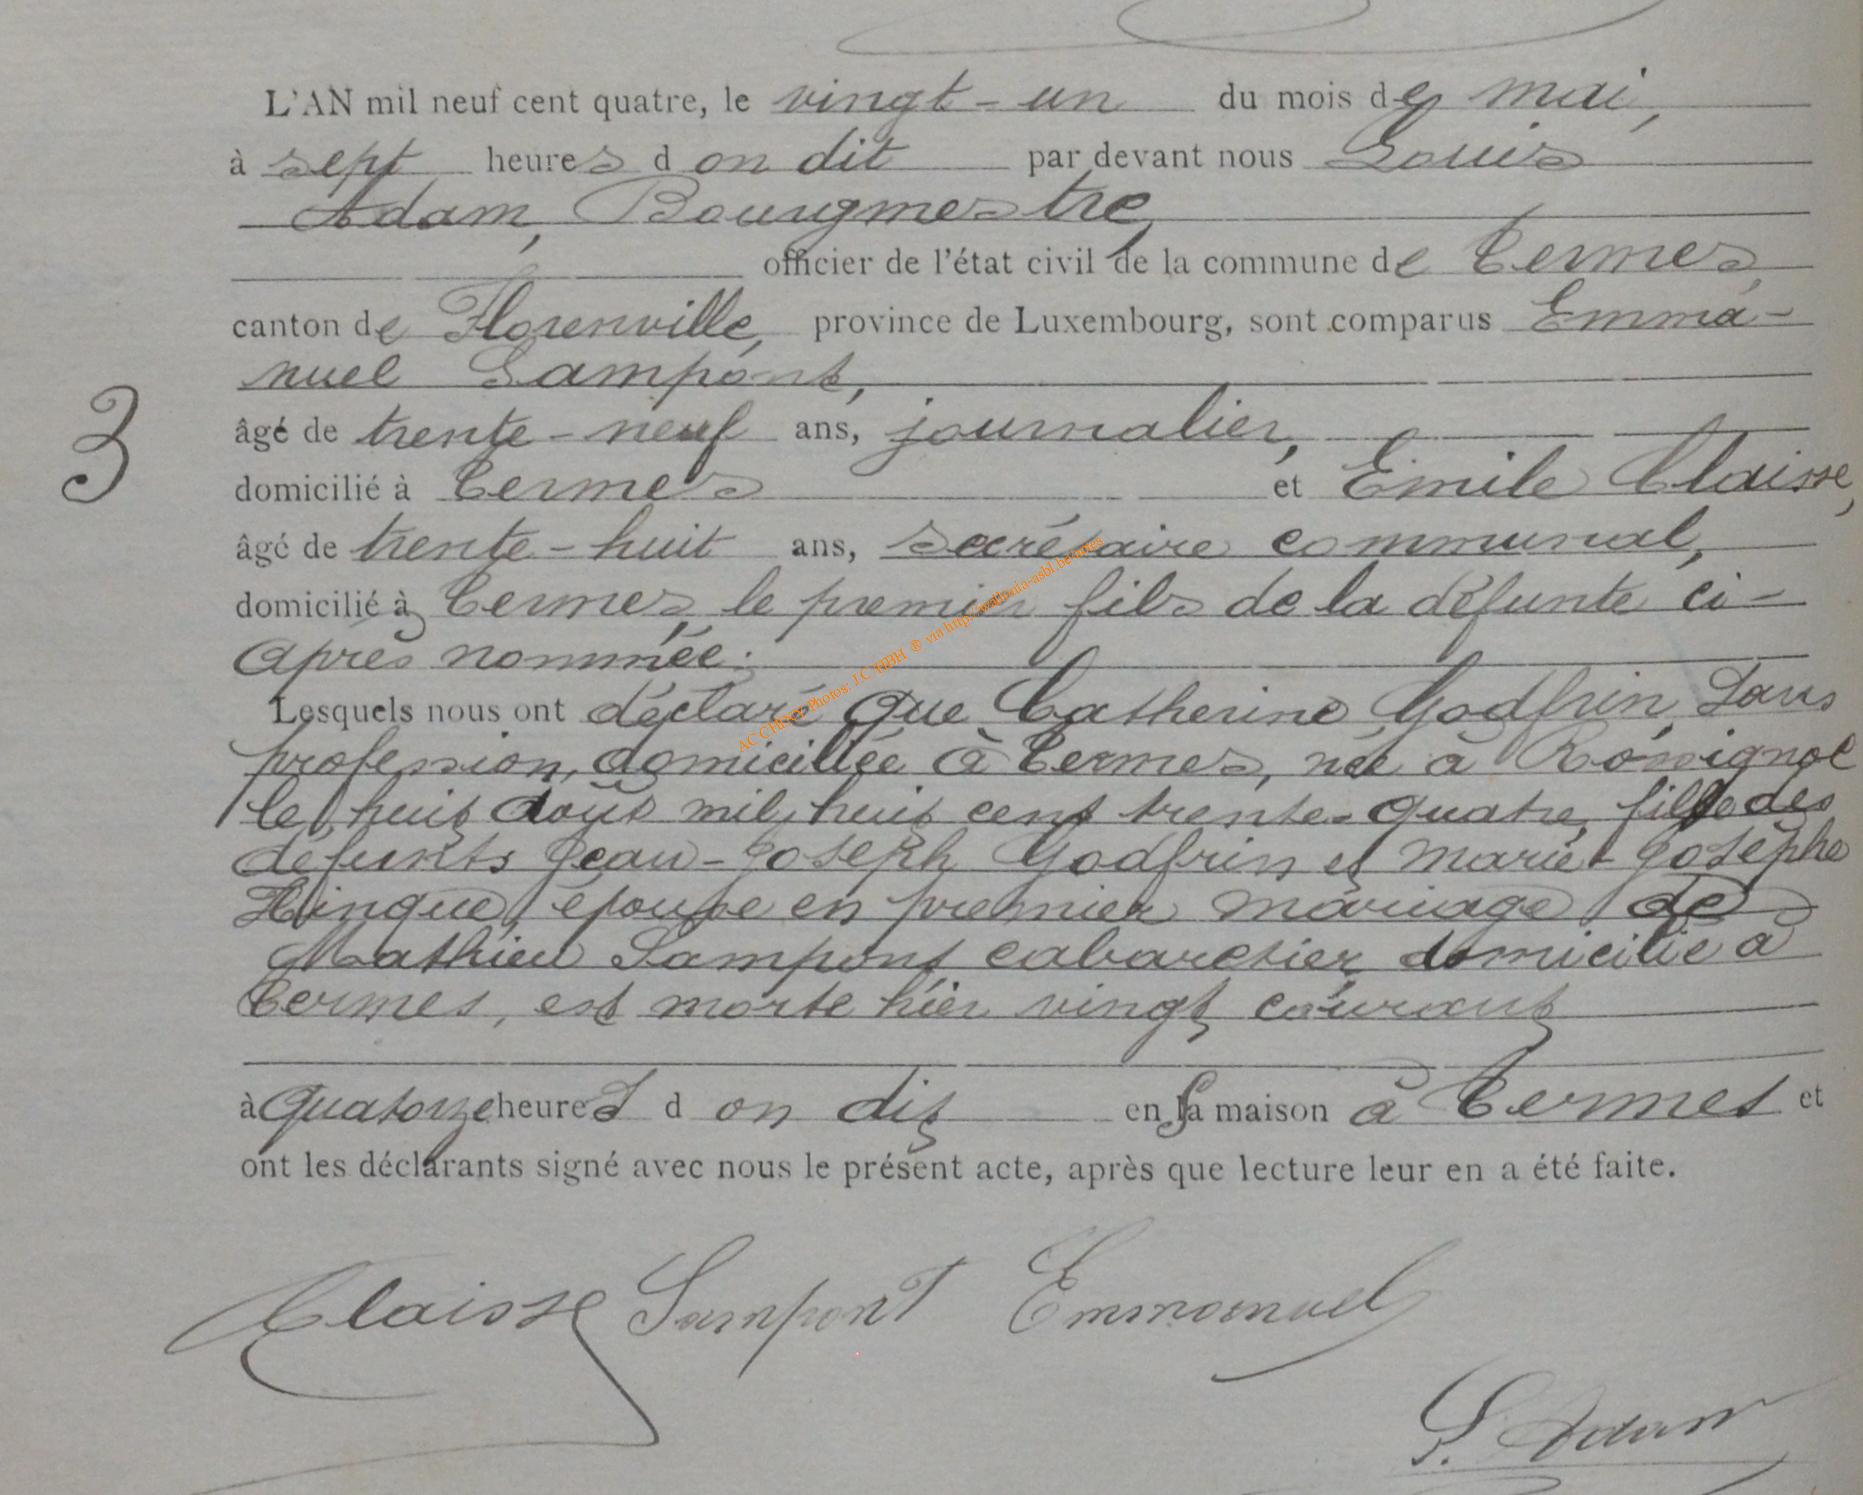 L'AN mil neuf cent quatre, le vingt-un du mois de mai,
à sept heures d on dit par devant nous Louis
Adam, Bourgmestre,
officier de l'état civil de la commune de Termes,
canton de Florenville, province de Luxembourg, sont comparus Emma-
nuel Lampont,
3
âgé de trente-neuf ans, journalier,
domicilié à Termes et Emile Claisse,
âgé de trente-huit ans, secrétaire communal,
domicilié à Termes, le premier fils de la défunte ci-
après nommée.
Lesquels nous ont déclaré que Catherine Godfrin, sans
profession, domiciliée à Termes, née à Rossignol
le huit août mil huit cent trente-quatre, fille des
défunts Jean-Joseph Godfrin et Marie-Josèphe
Hinque, épouse en premier mariage de
Mathieu Lampont cabaretier domicilié à
Termes, est morte hier vingt courant
à quatorze heures d on dit en sa maison à Termes et
ont les déclarants signé avec nous le présent acte, après que lecture leur en a été faite.
Claisse Lampont Emmanuel
L. Adam